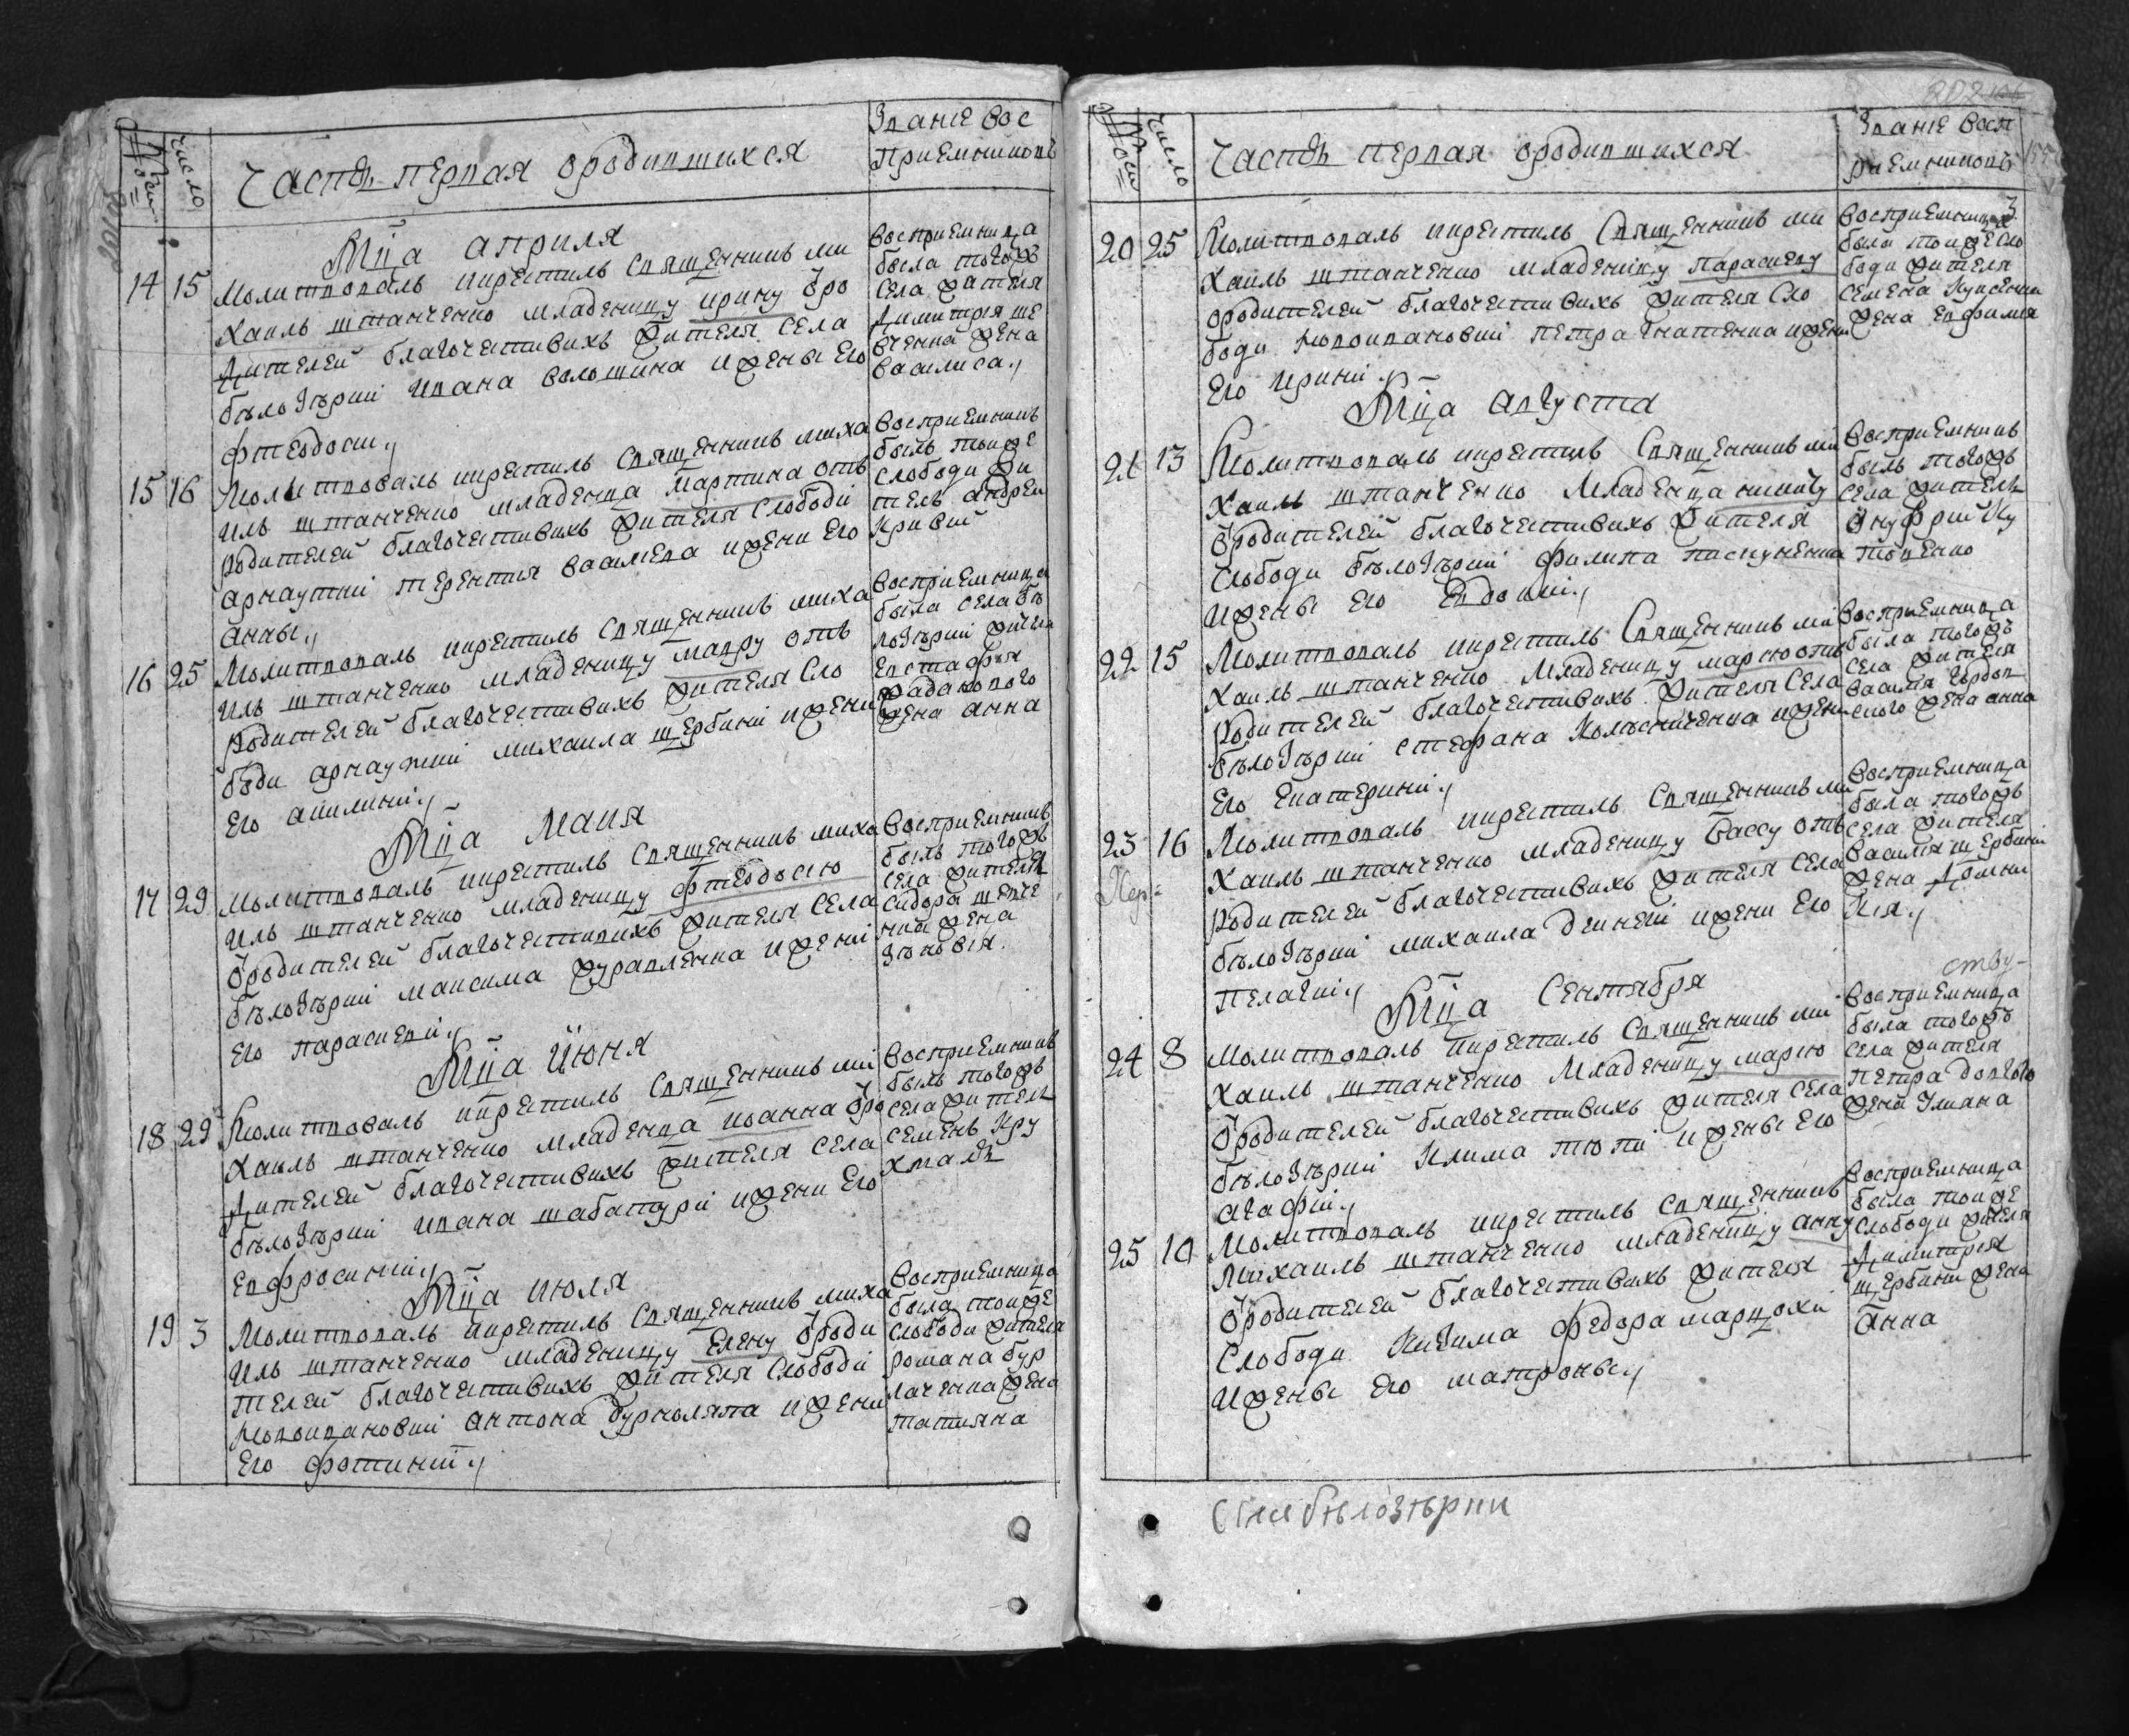 Часть первая ородившихся
Званіе вос
приемниковъ
Число
Мца априля
14 15 Молитвовалъ икрестилъ священникъ ми
хаилъ штанченко младеницу ирину ѿро
дителей благочестивихъ жителя села
бѣлозѣрки ивана волошина ижены его
фтеодоси
восприемница
была тогожъ
села жителя
димитрия ше
вченка жена
василиса
15 16 Молитвовалъ икрестилъ священникъ миха
илъ штанченко младенца мартина отъ
родителей благочестивихъ жителя слободи
арнаутки терентия василева ижени его
анны
восприемникъ
былъ тоиже
слободи жи
тель андреи
кривии
16 25 Молитвовалъ икрестилъ священникъ миха
илъ штанченко младеницу мавру отъ
родителей благочестивихъ жителя сло
боди арнаутки михаила щербини ижени
его акилини
восприемница
была села бѣ
лозѣрки жителя
евстафия
жаданового
жена анна
Мца маия
17 29 Молитвовалъ икрестилъ священникъ миха
илъ штанченко младеницу фтеодосию
ѿродителей благочестивихъ жителя села
бѣлозѣрки максима журавленка ижени
его параскеви
восприемникъ
былъ тогожъ
села жителя
сидора шевче
нка жена
зѣновия
Мца июня
18 29 Молитвовалъ икрестилъ священникъ ми
хаилъ штанченко младенца иоанна ѿро
дителей благочестивихъ жителя села
бѣлозѣрки ивана шабатури ижени его
евфросинии
восприемникъ
былъ тогожъ
села житель
семенъ кру
хмаль
Мца июля
19 3 Молитвовалъ икрестилъ священникъ миха
илъ штанченко младеницу елену ѿроди
телей благочестивихъ жителя слободи
антона дурноляпа ижени
его фотинии
восприемница
была тоиже
слободи жителя
романа бур
лаченка жена
татияна
Часть первая ородившихся
Званіе восп
риемниковъ
Число
20 25 Молитвовалъ икрестилъ священникъ ми
хаилъ штанченко младеницу параскеву
ѿродителей благочестивихъ жителя сло
боди петра игнатенка ижени
его ирини
восприемница
была тоиже сло
боди жителя
семена
жена евфимия
Мца августа
21 13 Молитвовалъ икрестилъ священникъ ми
хаилъ штанченко младенца никиту
ѿродителей благочестивихъ жителя
слободи бѣлозѣрки филипа паскуненка
ижены его евдокии
восприемникъ
былъ тогожъ
села житель
ѿнуфрий ку
товенко
22 15 Молитвовалъ икрестилъ священникъ ми
хаилъ штанченко младеницу марию отъ
родителей благочестивихъ жителя села
бѣлозѣрки стефана колѣсниченка ижени
его екатерини
восприемница
была тогожъ
села жителя
василия гордов
ского жена анна
23 16 Молитвовалъ икрестилъ священникъ ми
хаилъ штанченко младеницу вассу отъ
родителей благочестивихъ жителя села
бѣлозѣрки михаила деинеки ижени его
пелагии
восприемница
была тогожъ
села жителя
василия щербини
жена домни
кия
Мца сентября
24 8 Молитвовалъ икрестилъ священникъ ми
хаилъ штанченко младеницу марию
ѿродителей благочестивихъ жителя села
бѣлозѣрки клима тюпи ижены его
агафии
восприемница
была тогожъ
села жителя
петра довгого
жена улиана
25 10 Молитвовалъ икрестилъ священникъ
михаилъ штанченко младеницу анну
ѿродителей благочестивихъ жителя
слободи кизима федора марцохи
ижены его матроны
восприемница
была тоиже
слободи жителя
димитрия
щербини жена
анна
бѣлозѣрки